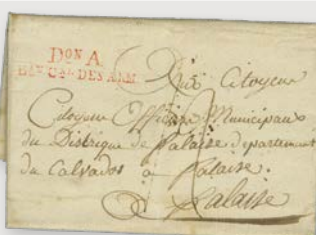 DON A
DES ARM
Citoyen
Citoyen Officier Municipaux
du Distrique de falaise departement
du Calvados a falaise.
a falaise